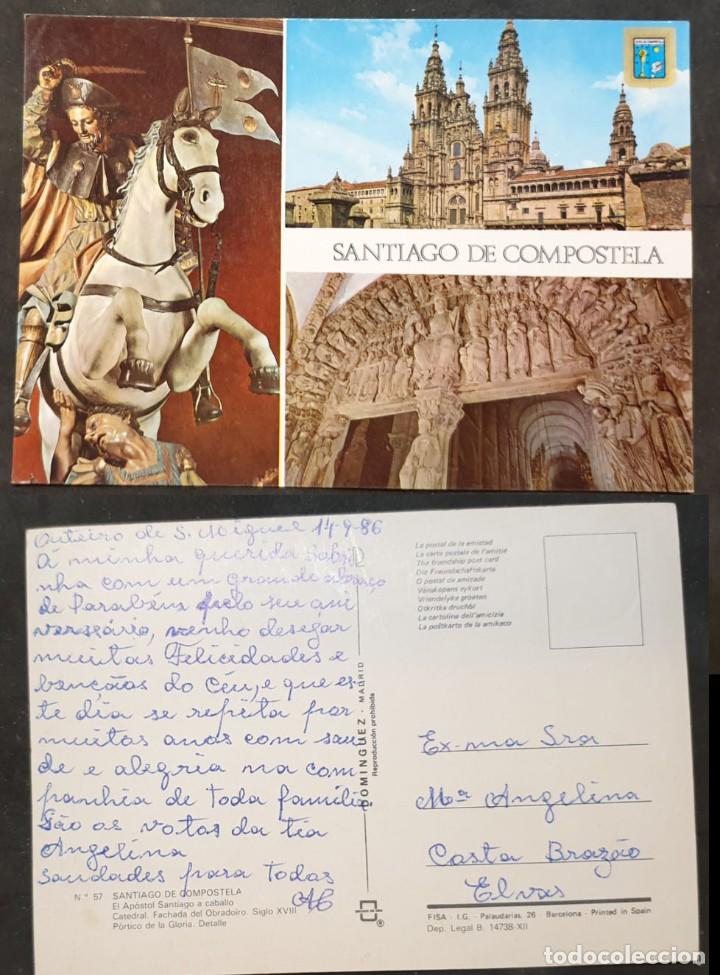 SANTIAGO DE COMPOSTELA
Outeiro de S. Miguel 14-9-86
Á minha querida
nha com um grande abraço
de Parabéns pelo seu ani
versário, venho desejar
muitas Felicidades e
bençãos do Céu, e que es
te dia se repita por
muitos anos com sau
de e alegria na com
panhia de toda família
São os votos da tia
Angelina
saudades para todos
N.º 57 SANTIAGO DE COMPOSTELA
El Apóstol Santiago a caballo
Catedral. Fachada del Obradoiro. Siglo XVIII
Pórtico de la Gloria. Detalle
DOMINGUEZ - MADRID
Reproducción prohibida
®
La postal de la amistad
La carte postale de l'amitié
The friendship post card
Die Freundschaftskarte
O postal de amizade
Vänskapens vykort
Vriendelyke groeten
Otkritka druchbi
La cartolina dell'amicizia
La poŝtkarto de la amikeco
Ex-ma Sra
Mª Angelina
Costa Brazão
Elvas
FISA - I.G. - Palaudarias, 26 - Barcelona - Printed in Spain
Dep. Legal B. 14738-XII
todocoleccion